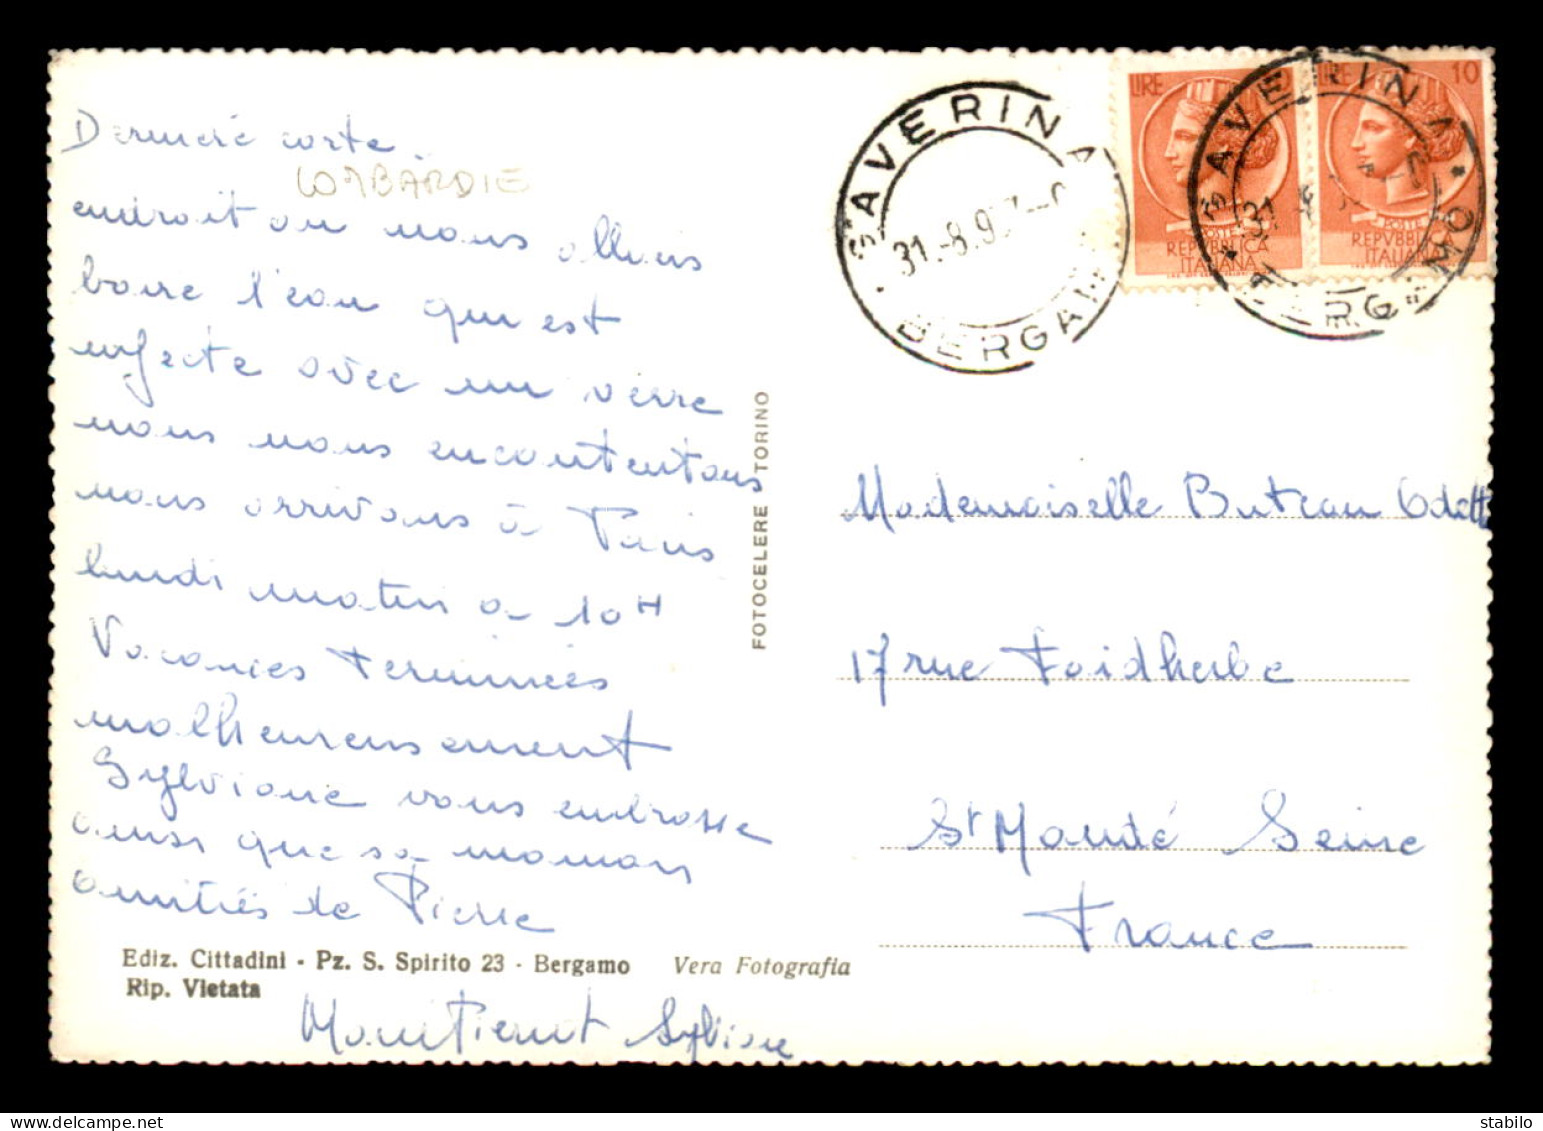 Dernière carte
LOMBARDIE
endroit ou nous allions
boire l'eau qui est
infecte avec un verre
nous nous encontentons
nous arrivons à Paris
lundi matin a 10H
Vacances terminées
malheureusement
Sylviane vous embrasse
ainsi que sa maman
amitiés de Pierre
Ediz. Cittadini - Pz. S. Spirito 23 - Bergamo Vera Fotografia
Rip. Vietata
Sylviane
FOTOCELERE TORINO
SAVERINA
31.-8.9
BERGAMO
LIRE
POSTE
REPVBBLICA
ITALIANA
LIRE 10
POSTE
REPVBBLICA
ITALIANA
SAVERINA
31
BERGAMO
Mademoiselle Buteau Odette
17 rue Faidherbe
St Mandé Seine
France
stabilo